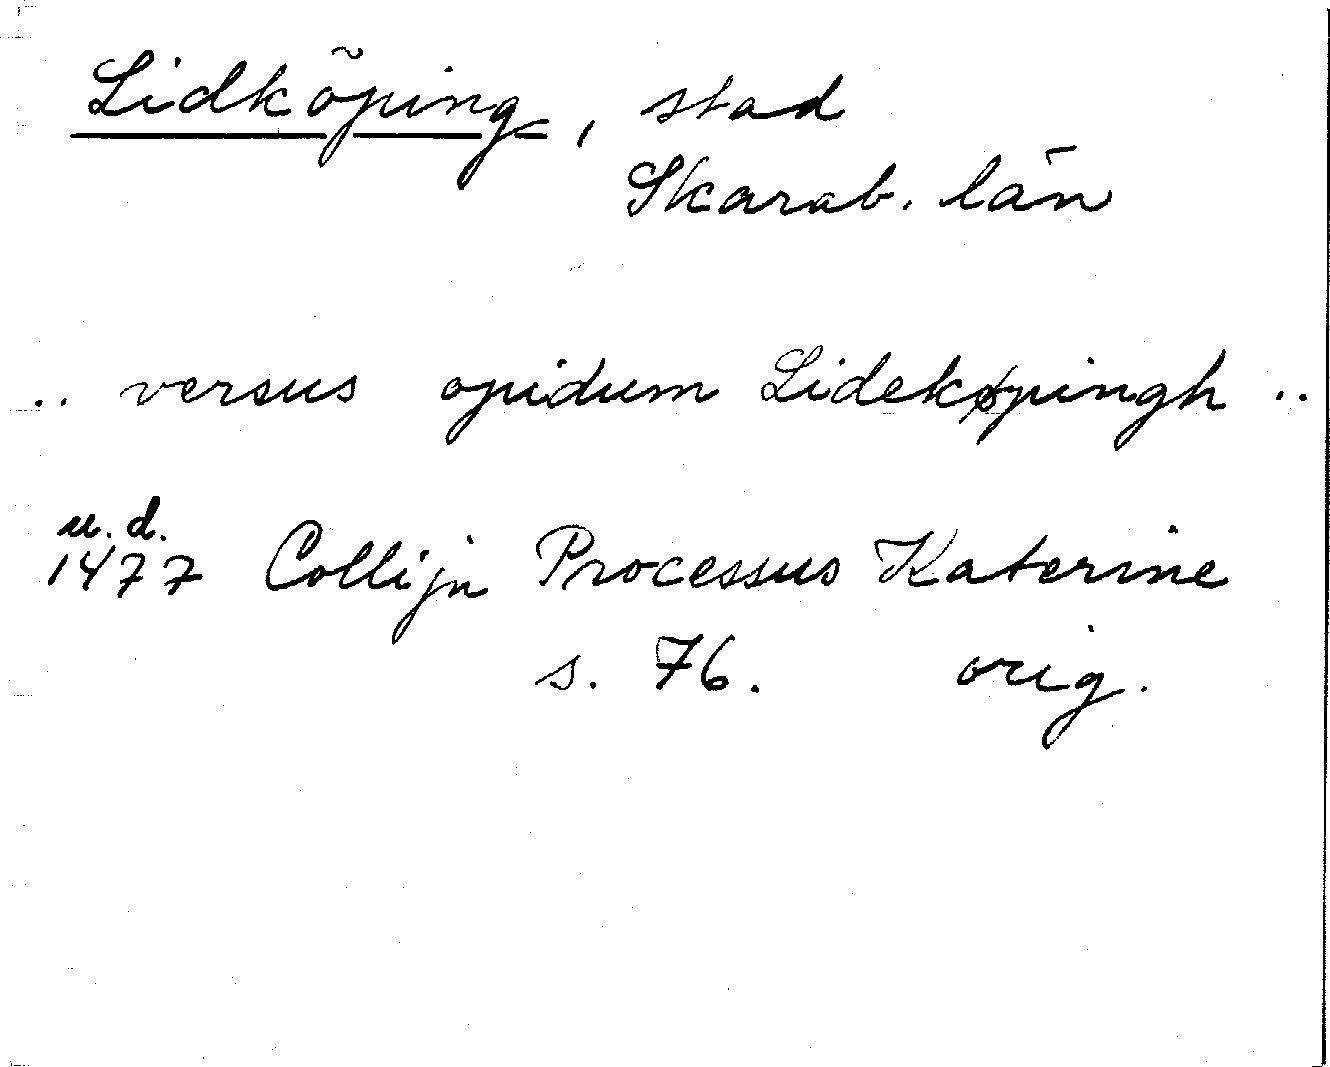 Lidköping, stad
Skarab. län
.. versus opidum Lidekøpingh ..
u.d.
1477 Collijn Processus Katerine
s. 76. orig.